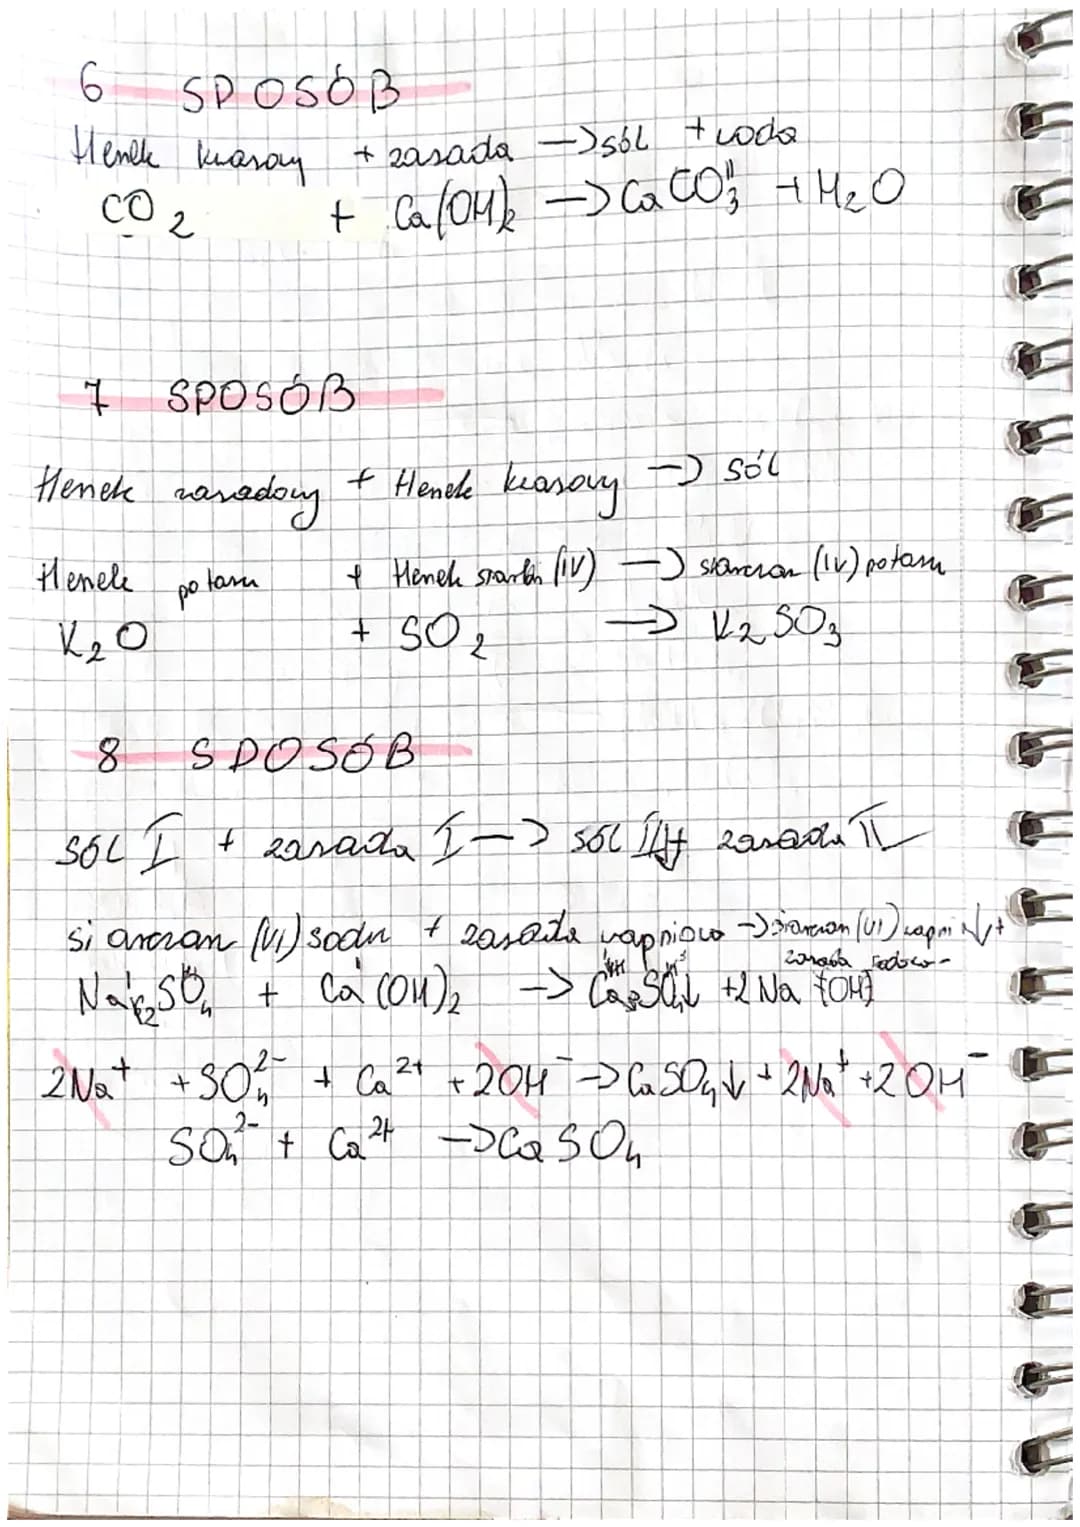 6 SPOSÓB
tlenek kwasowy + zasada → sól + woda
CO₂ + Ca(OH)₂ → CaCO₃ + H₂O
7 SPOSÓB
tlenek zasadowy + tlenek kwasowy → sól
tlenek potasu + tlenek siarki (IV) → siarczan (IV) potasu
K₂O + SO₂ → K₂SO₃
8 SPOSÓB
SÓL I + zasada I → SÓL II↓ + zasada II
siarczan (VI) sodu + zasada wapniowa → siarczan (VI) wapnia ↓ +
zasada sodowa
Na₂SO₄ + Ca(OH)₂ → CaSO₄↓ + 2Na(OH)
2Na⁺ + SO₄²⁻ + Ca²⁺ + 2OH⁻ → CaSO₄↓ + 2Na⁺ + 2OH⁻
SO₄²⁻ + Ca²⁺ → CaSO₄